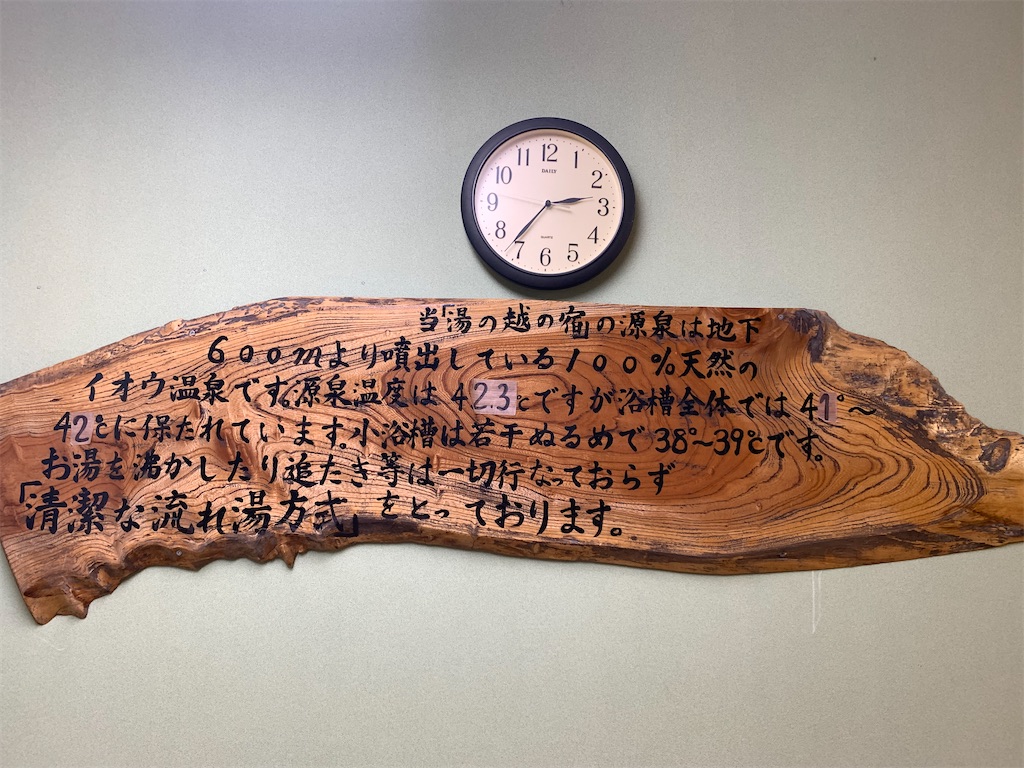 11 12 1
10 2
DAILY
9 3
8 4
QUARTZ
7 6 5
当「湯の越の宿」の源泉は地下
600mより噴出している100%天然の
イオウ温泉です。源泉温度は42.3℃ですが浴槽全体では41°～
42℃に保たれています。小浴槽は若干ぬるめで38°～39℃です。
お湯を沸かしたり追たき等は一切行なっておらず
「清潔な流れ湯方式」をとっております。